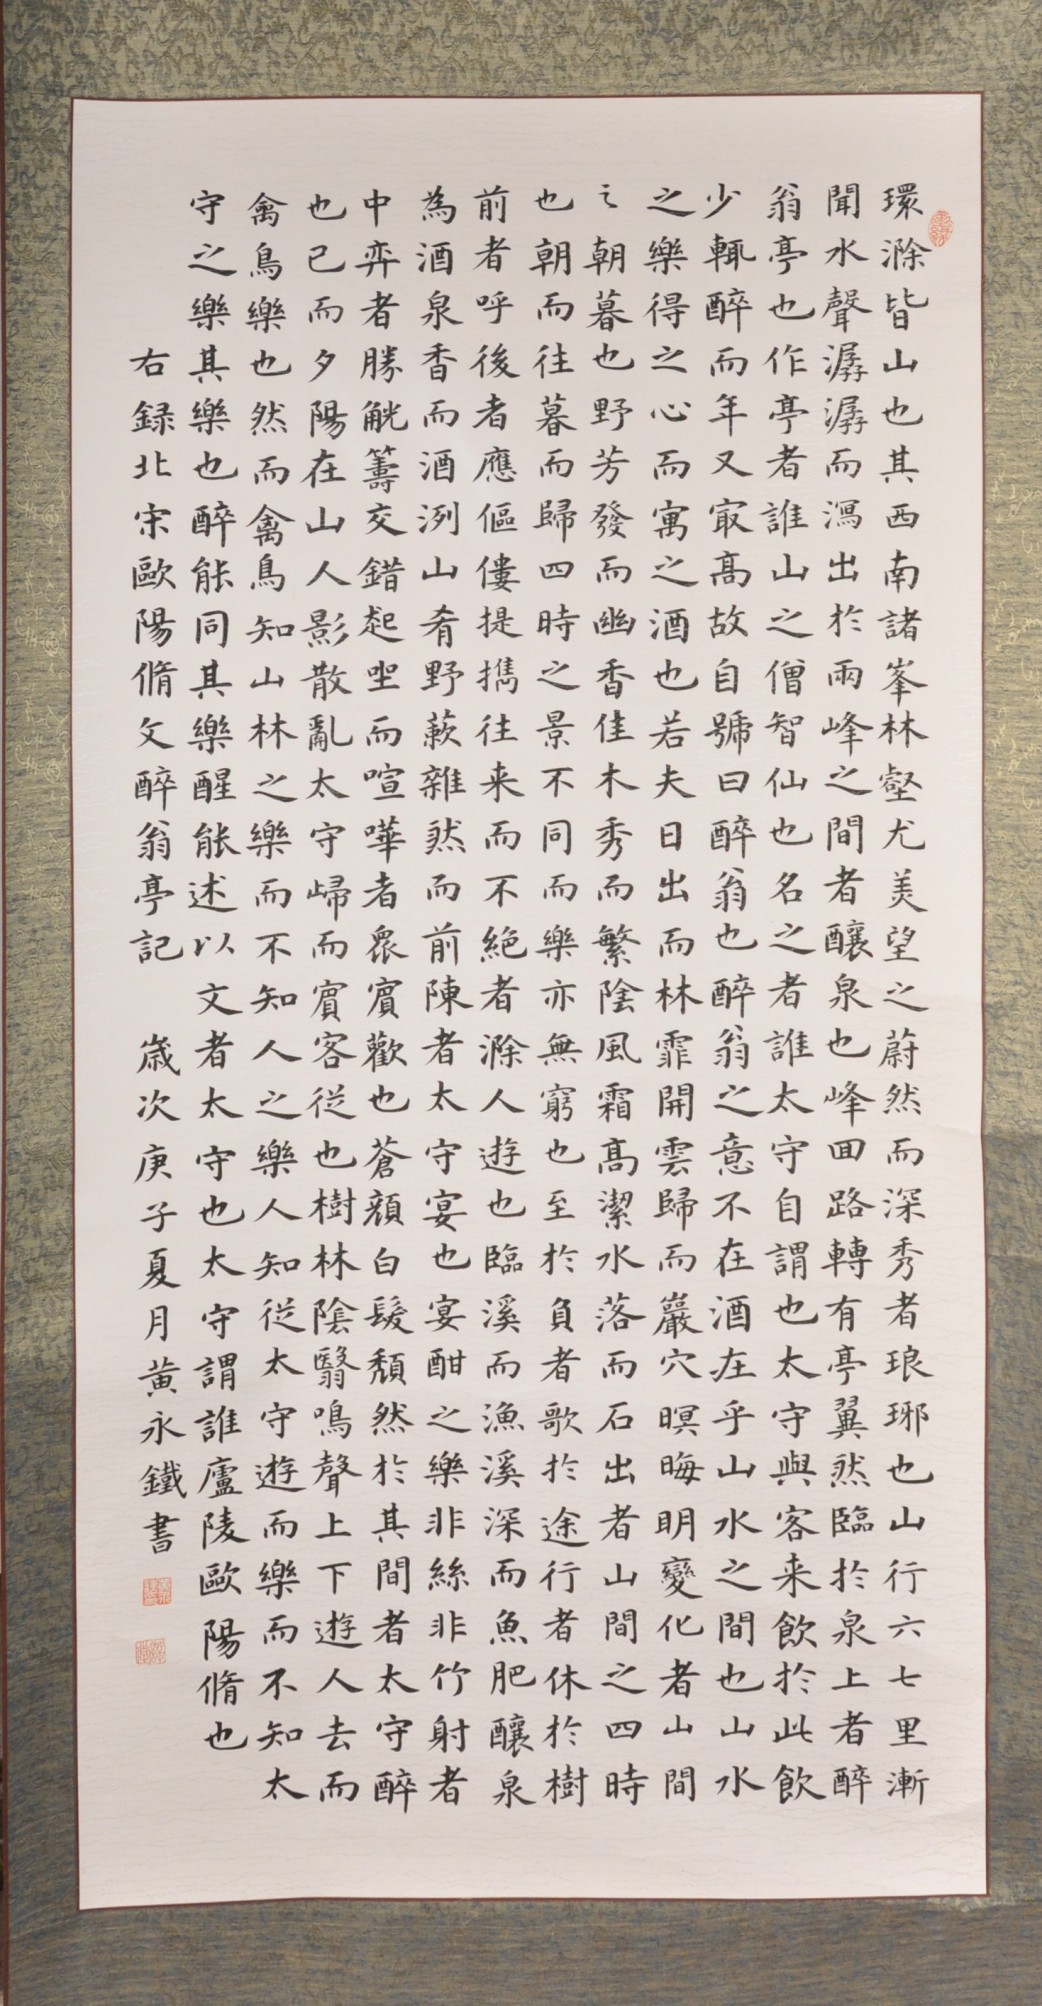 環滁皆山也其西南諸峯林壑尤美望之蔚然而深秀者琅琊也山行六七里漸
聞水聲潺潺而瀉出於兩峰之間者釀泉也峰回路轉有亭翼然臨於泉上者醉
翁亭也作亭者誰山之僧智仙也名之者誰太守自謂也太守與客来飲於此飲
少輒醉而年又冣髙故自號曰醉翁也醉翁之意不在酒在乎山水之間也山水
之樂得之心而寓之酒也若夫日出而林霏開雲歸而巖穴暝晦明變化者山間
之朝暮也野芳發而幽香佳木秀而繁陰風霜髙潔水落而石出者山間之四時
也朝而往暮而歸四時之景不同而樂亦無窮也至於負者歌於途行者休於樹
前者呼後者應傴僂提攜往来而不絶者滁人遊也臨溪而漁溪深而魚肥釀泉
為酒泉香而酒洌山肴野蔌雜然而前陳者太守宴也宴酣之樂非絲非竹射者
中弈者勝觥籌交錯起坐而喧嘩者衆賓歡也蒼顏白髮頹然於其間者太守醉
也已而夕陽在山人影散亂太守歸而賓客從也樹林陰翳鳴聲上下遊人去而
禽鳥樂也然而禽鳥知山林之樂而不知人之樂人知從太守遊而樂而不知太
守之樂其樂也醉能同其樂醒能述以文者太守也太守謂誰廬陵歐陽脩也
右録北宋歐陽脩文醉翁亭記 歲次庚子夏月黃永鐵書